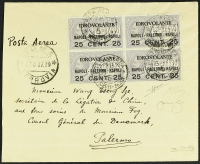 Posta Aerea
IDROVOLANTE
NAPOLI-PALERMO-NAPOLI
25 CENT. 25
IDROVOLANTE
NAPOLI-PALERMO-NAPOLI
25 CENT. 25
IDROVOLANTE
NAPOLI-PALERMO-NAPOLI
25 CENT. 25
IDROVOLANTE
NAPOLI-PALERMO-NAPOLI
25 CENT. 25
Monsieur Wang
Secrétaire de la Légation de Chine,
aux bon soins de Monsieur
Consul Général du Danemark,
Palermo